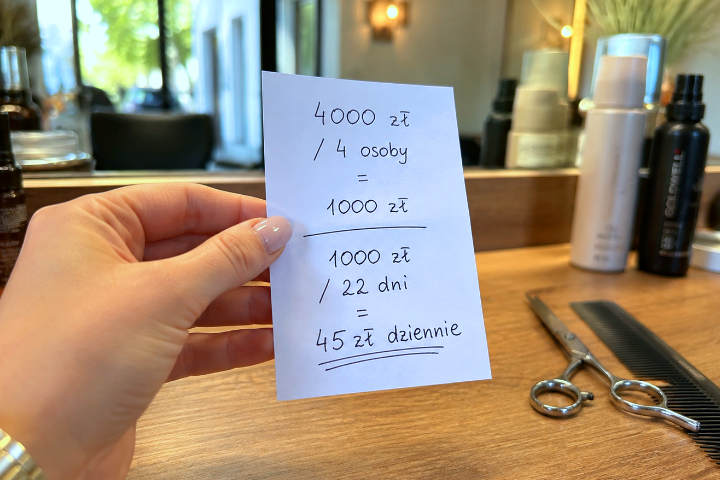 4000 zł
/ 4 osoby
=
1000 zł
1000 zł
/ 22 dni
=
45 zł dziennie
GOLDWELL